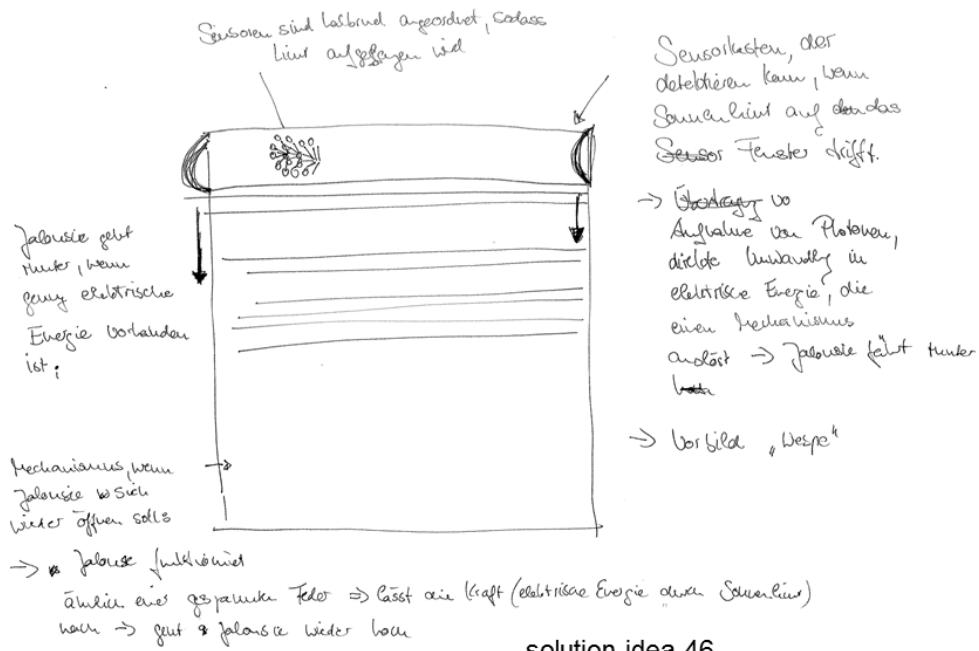 Sensoren sind halbrund angeordnet, sodass
Licht aufgefangen wird
Sensorkasten, der
detektieren kann, wenn
Sonnenlicht auf das
Sensor Fenster trifft.
→
Aufnahme von Photonen,
direkte Umwandlg in
elektrische Energie, die
einen Mechanismus
auslöst → Jalousie fährt runter
→ Vorbild „Wespe"
Jalousie geht
runter, wenn
genug elektrische
Energie vorhanden
ist;
Mechanismus, wenn
Jalousie sich
wieder öffnen soll:
→ Jalousie funktioniert
ähnlich einer gespannten Feder ⇒ lässt die Kraft (elektrische Energie durch Sonnenlicht)
nach → geht Jalousie wieder hoch
solution idea 46